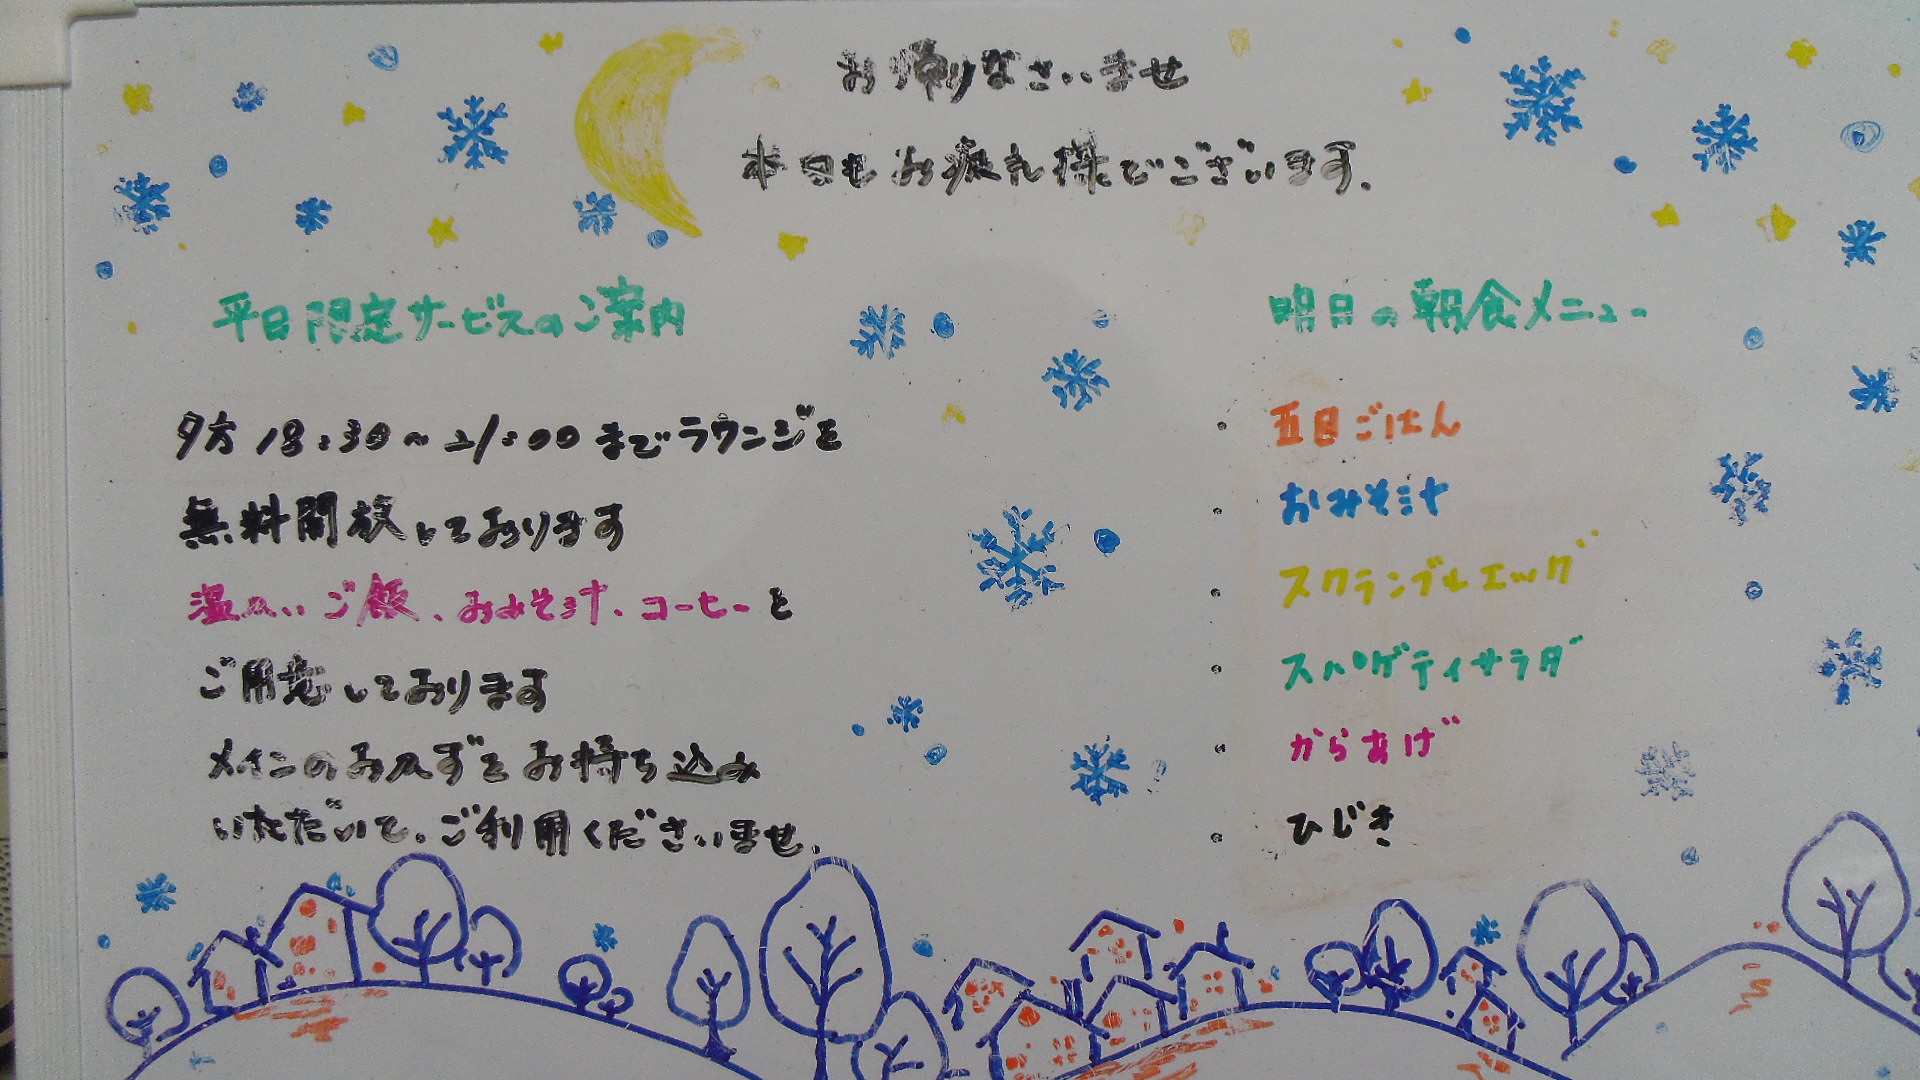 お帰りなさいませ
本日もお疲れ様でございます.
平日限定サービスのご案内
夕方18:30~21:00までラウンジを
無料開放しております
温かいご飯、おみそ汁、コーヒーを
ご用意しております
メインのおかずをお持ち込み
いただいて、ご利用くださいませ.
明日の朝食メニュー
・五目ごはん
・おみそ汁
・スクランブルエッグ
・スパゲティサラダ
・からあげ
・ひじき